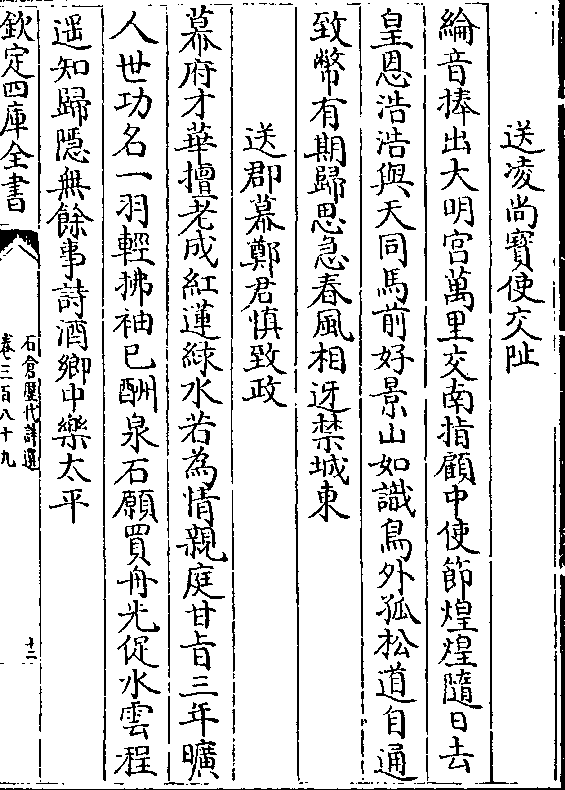 送凌尚寶使交阯
綸音捧出大明宮萬里交南指顧中使節煌煌隨日去
皇恩浩浩與天同馬前好景山如識鳥外孤松道自通
致幣有期歸思急春風相迓禁城東
送郡幕鄭君慎致政
幕府才華擅老成紅蓮綠水若為情親庭甘旨三年曠
人世功名一羽輕拂袖已酬泉石願買舟先促水雲程
遥知歸隱無餘事詩酒鄉中樂太平
欽定四庫全書
石倉歷代詩選
卷三百八十九
十二